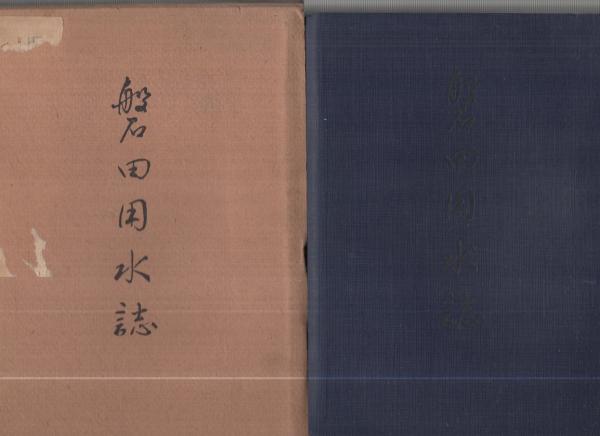 磐田用水誌
磐田用水誌